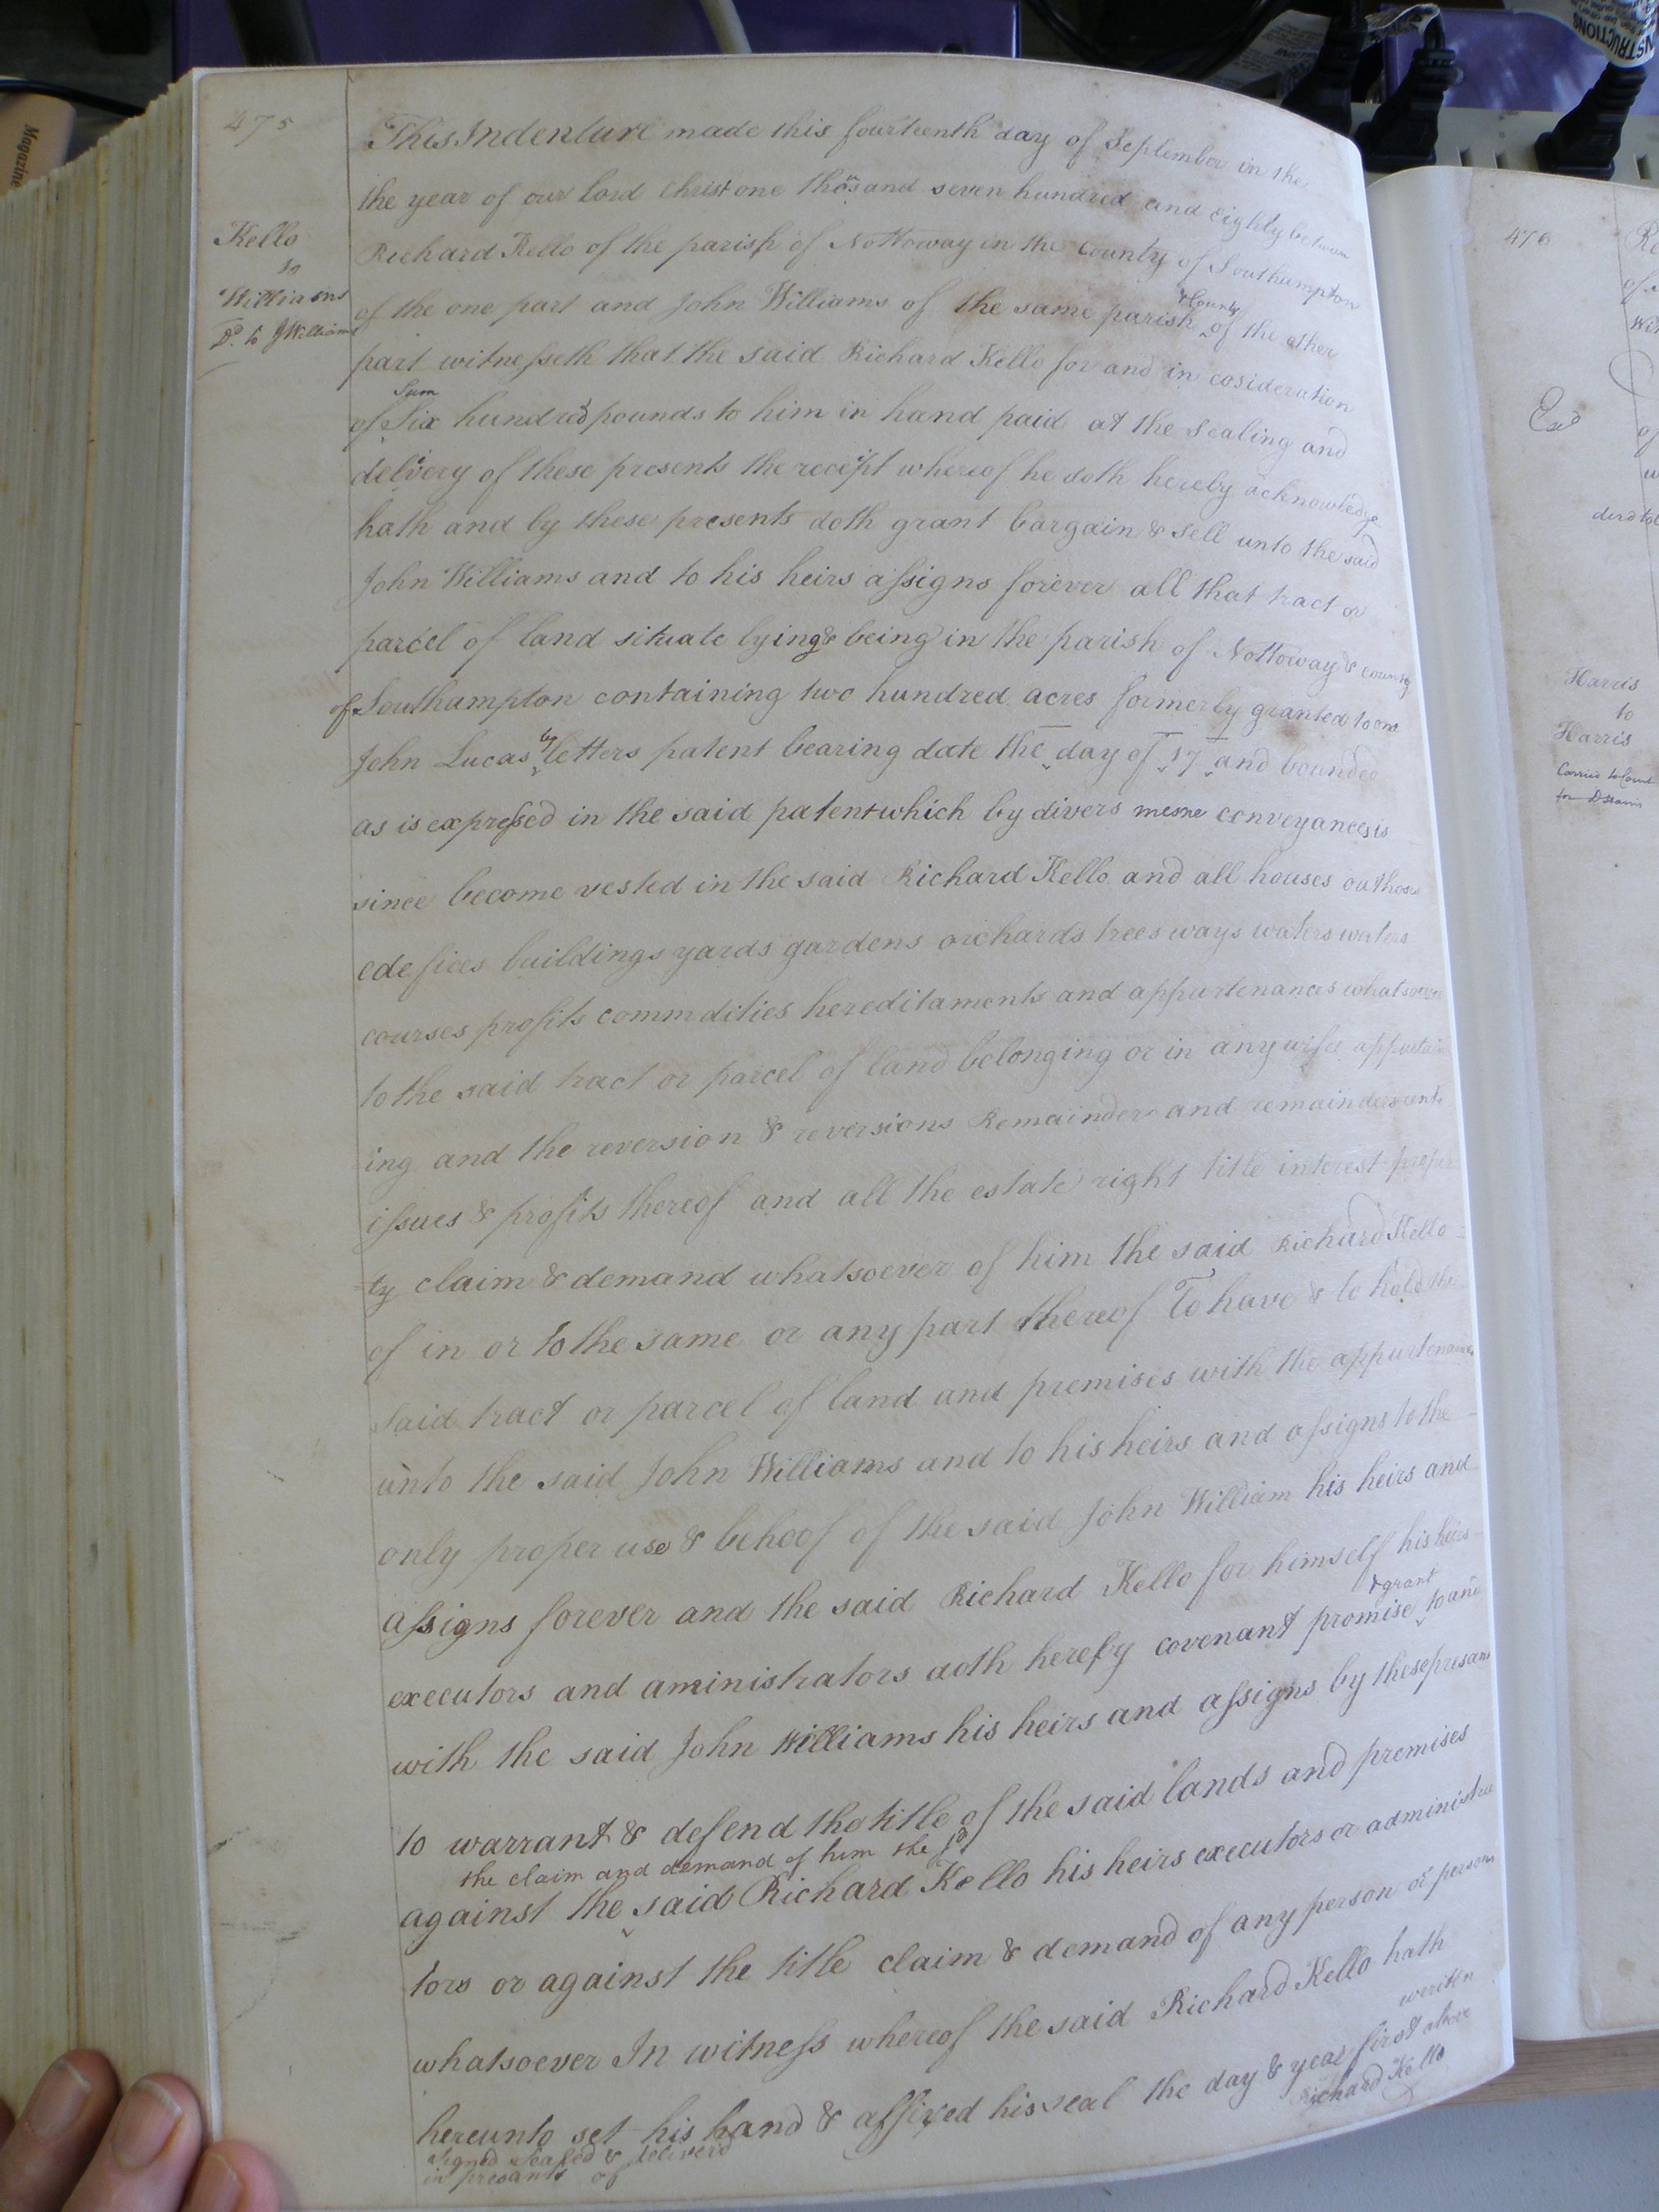 475
Kello
to
Williams
Dd. to J Williams
This Indenture made this fourteenth day of September in the
the year of our lord Christ one thousand seven hundred and eighty between
Richard Kello of the parish of Nottoway in the county of Southampton
of the one part and John Williams of the same parish & County of the other
part witnesseth that the said Richard Kello for and in cosideration
of Sum Six hundred pounds to him in hand paid at the sealing and
delivery of these presents the receipt whereof he doth hereby acknowledge
hath and by these presents doth grant bargain & sell unto the said
John Williams and to his heirs assigns forever all that tract or
parcel of land situate lying & being in the parish of Nottoway & county
of Southampton containing two hundred acres formerly granted to one
John Lucas by letters patent bearing date the day of 17 and bounded
as is expressed in the said patent which by divers mesne conveyances is
since become vested in the said Richard Kello and all houses outhouses
edefices buildings yards gardens orchards trees ways waters waters
courses profits commdities hereditaments and appurtenances whatsoever
to the said tract or parcel of land belonging or in any wise appurtain
ing and the reversion & reversions Remainder and remainders rents
issues & profits thereof and all the estate right title interest proper
=ty claim & demand whatsoever of him the said Richard Kello =
of in or to the same or any part thereof To have & to hold the
said tract or parcel of land and premises with the appurtenances
unto the said John Williams and to his heirs and assigns to the
only proper use & behoof of the said John William his heirs and
assigns forever and the said Richard Kello for himself his heirs
executors and aministrators doth hereby covenant promise & grant to and
with the said John Williams his heirs and assigns by these presants
to warrant & defend the title of the said lands and premises
the claim and demand of him the sd
against the said Richard Kello his heirs executors or administra
tors or against the title claim & demand of any person or persons
whatsoever In witness whereof the said Richard Kello hath
hereunto set his hand & affixed his seal the day & year first above written
Richard Kello
Signed Sealed & deliverd
in presants of
476
Exd
Harris
to
Harris